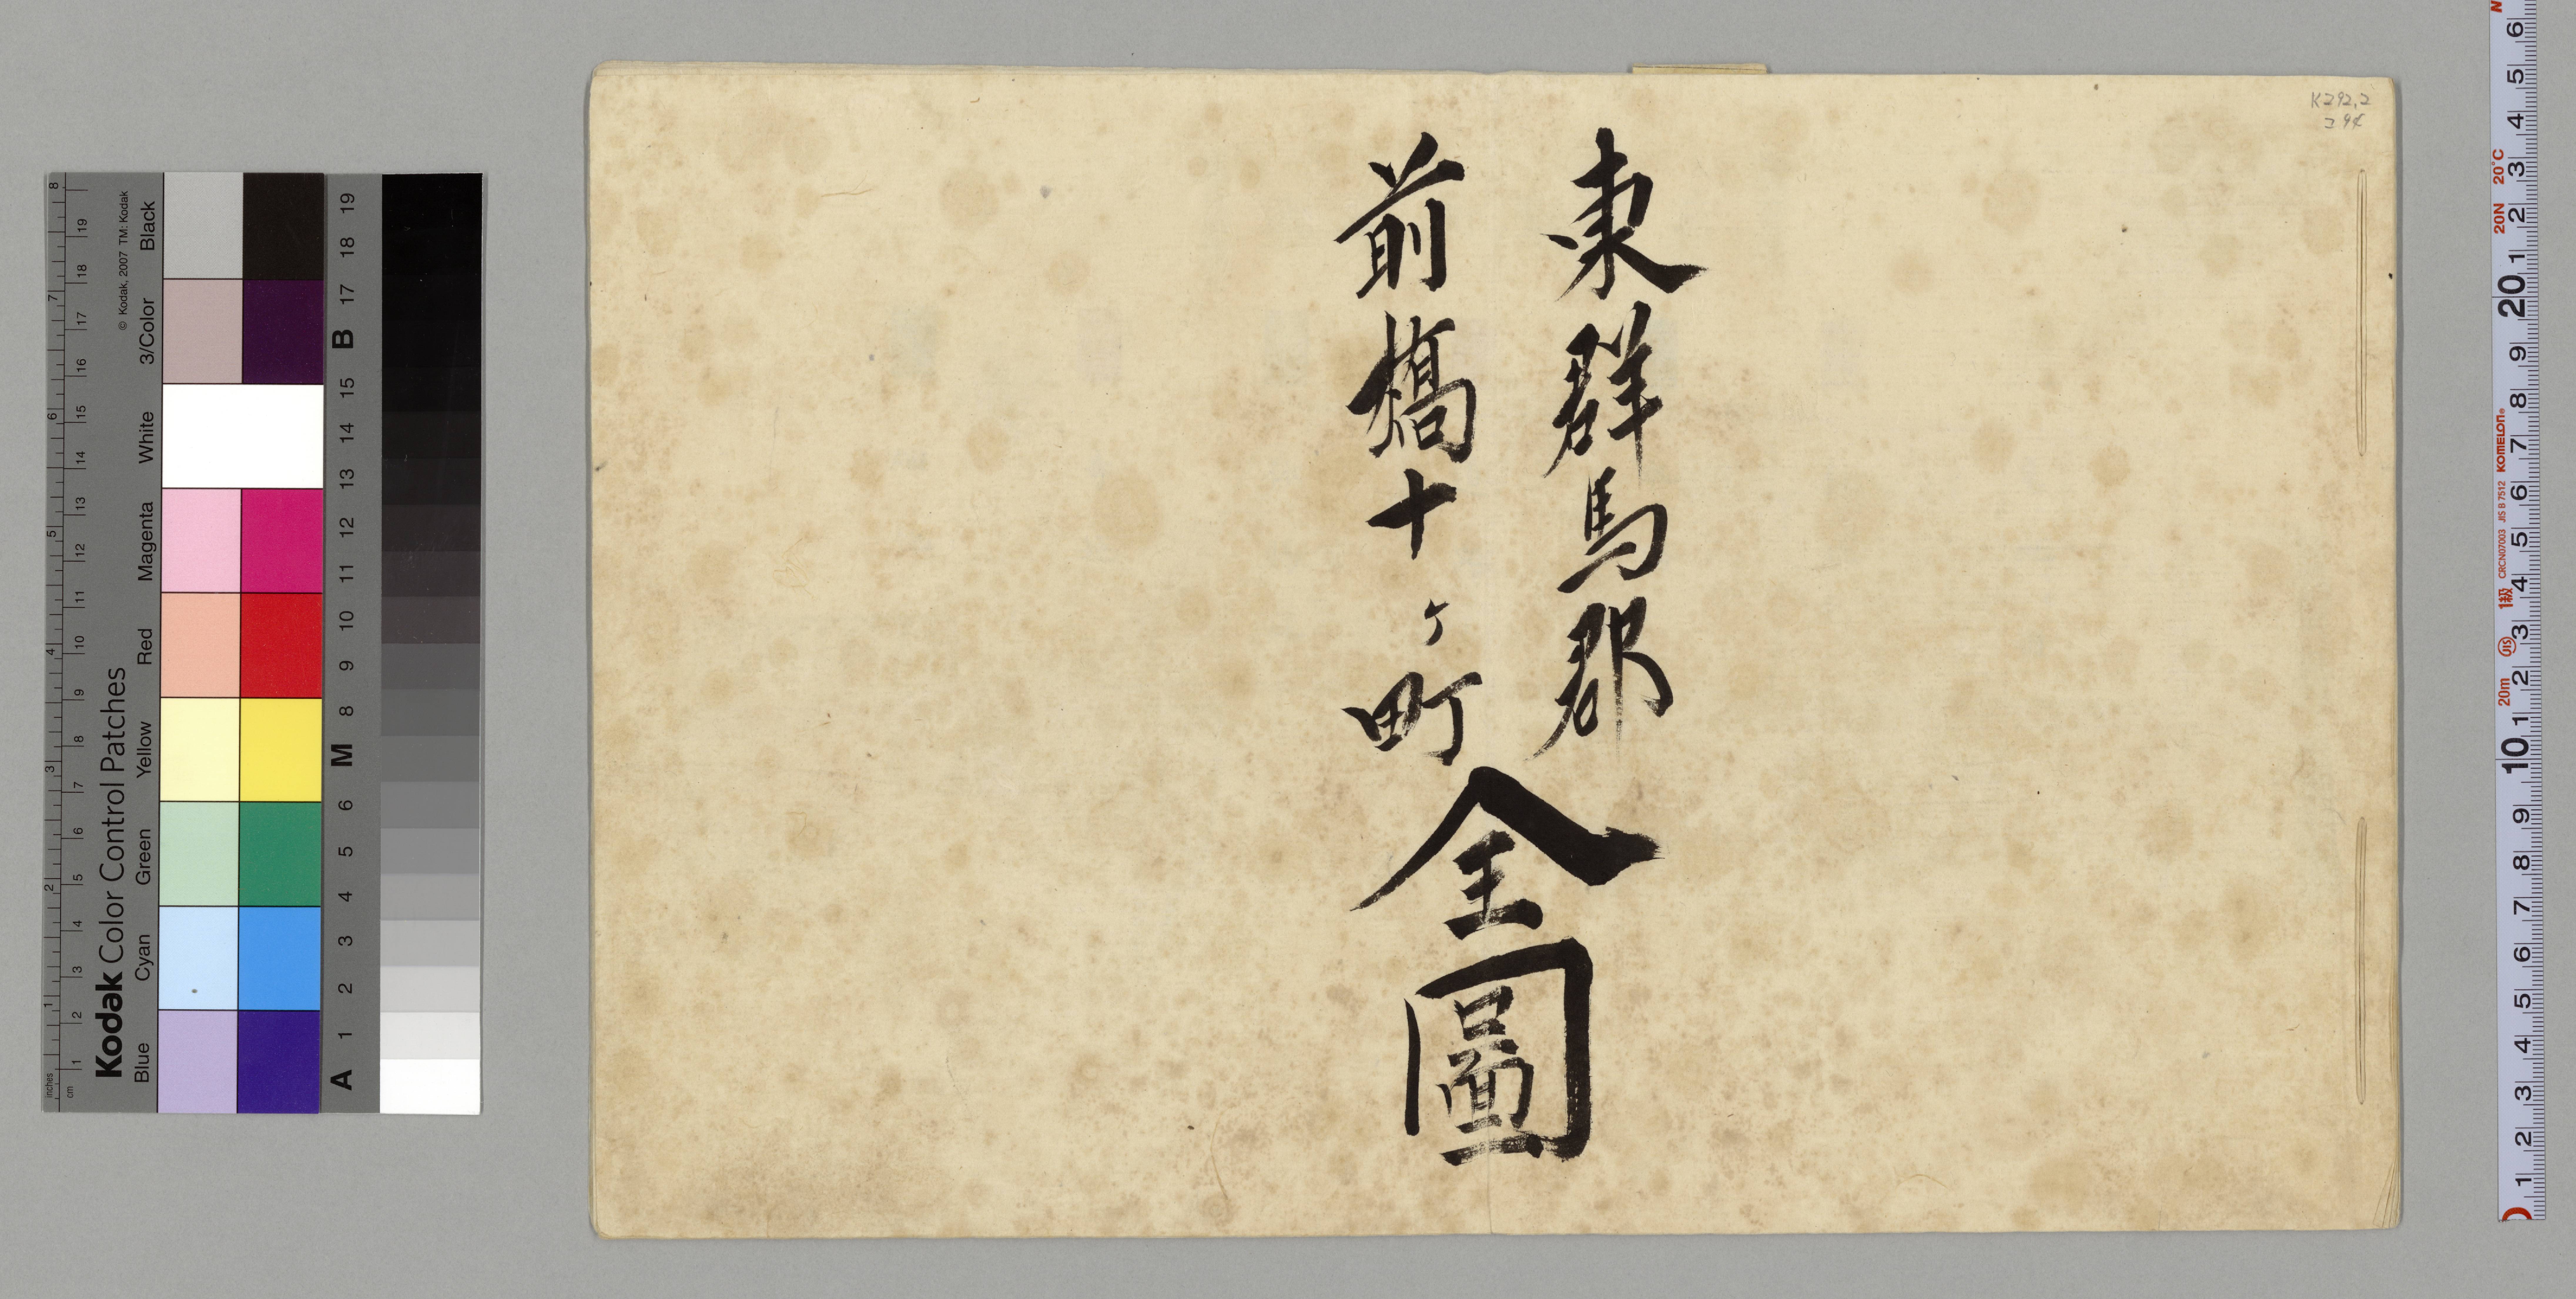 東群馬郡
前橋十ヶ町
全圖
K292.2
Kodak Color Control Patches
© Kodak, 2007 TM: Kodak
Blue Cyan Green Yellow Red Magenta White 3/Color Black
inches 1 2 3 4 5 6 7 8
cm 1 2 3 4 5 6 7 8 9 10 11 12 13 14 15 16 17 18 19
A 1 2 3 4 5 6 M 8 9 10 11 12 13 14 15 B 17 18 19
1 2 3 4 5 6 7 8 9 10 1 2 3 4 5 6 7 8 9 20 1 2 3 4 5 6
20m JIS 1級 CRCN07003 JIS B 7512 KOMELON 20N 20°C